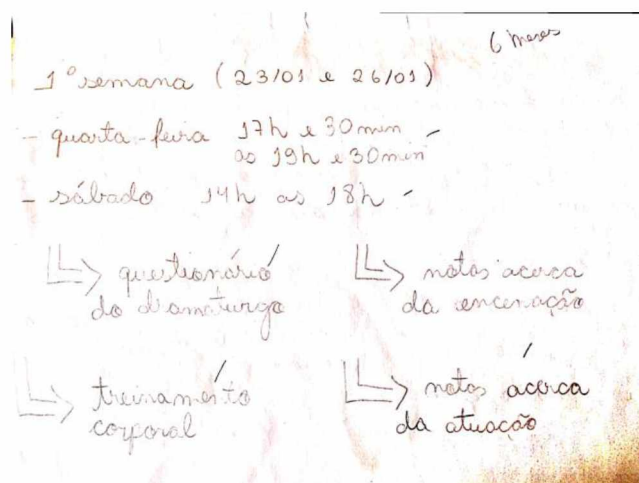 6 meses
1º semana (23/01 e 26/01)
- quarta-feira 17h e 30min
as 19h e 30min
- sábado 14h as 18h
questionário
do dramaturgo
notas acerca
da encenação
treinamento
corporal
notas acerca
da atuação